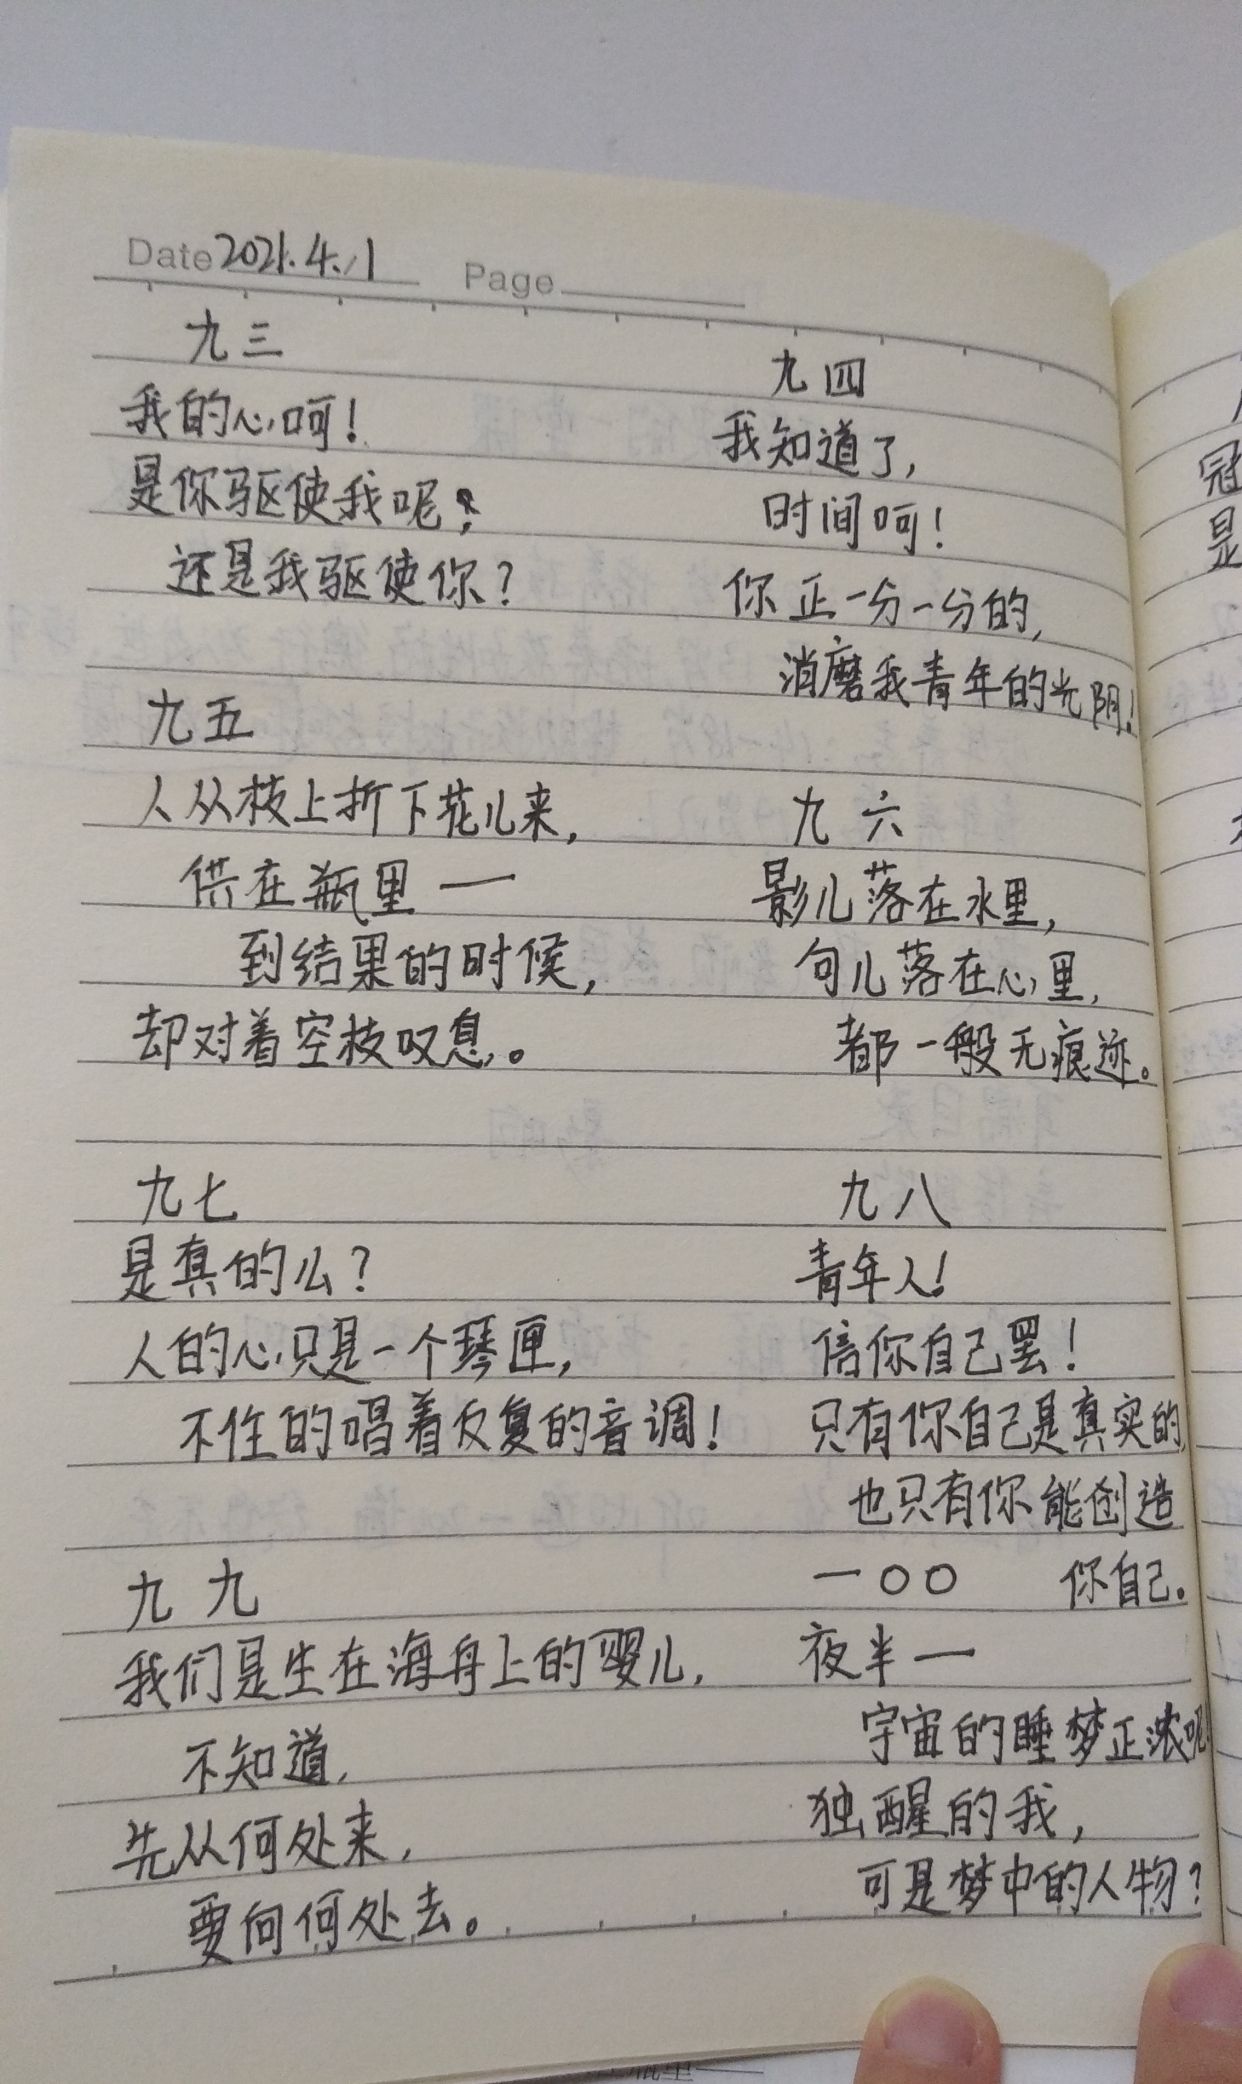 Date 2021.4.1 Page
九三
我的心呵!
是你驱使我呢?
还是我驱使你?
九四
我知道了,
时间呵!
你正一分一分的,
消磨我青年的光阴!
九五
人从枝上折下花儿来,
供在瓶里——
到结果的时候,
却对着空枝叹息。
九六
影儿落在水里,
句儿落在心里,
都一般无痕迹。
九七
是真的么?
人的心只是一个琴匣,
不住的唱着反复的音调!
九八
青年人!
信你自己罢!
只有你自己是真实的,
也只有你能创造
你自己.
九九
我们是生在海舟上的婴儿,
不知道,
先从何处来,
要向何处去。
一〇〇
夜半——
宇宙的睡梦正浓呢!
独醒的我,
可是梦中的人物?
冠
是